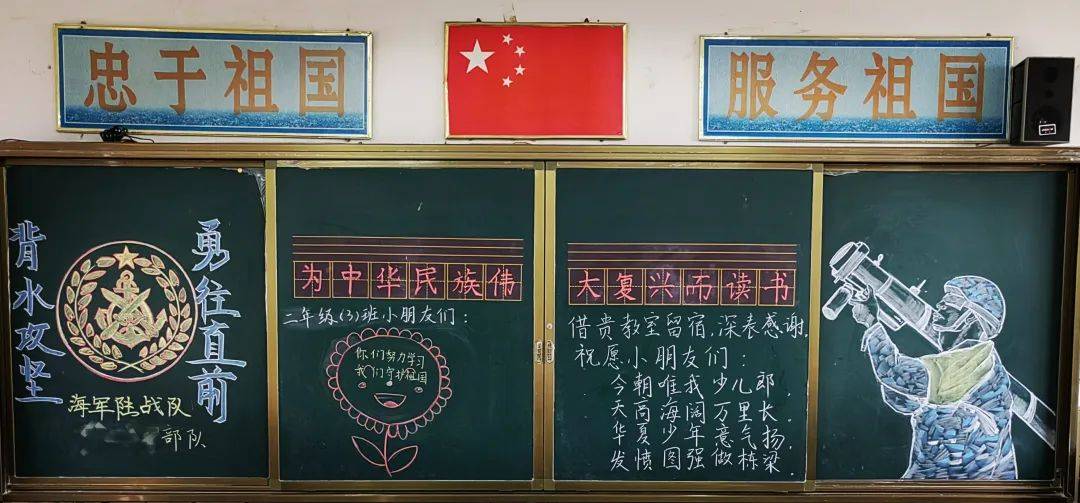 忠于祖国
服务祖国
背水攻坚
勇往直前
海军陆战队
部队
为中华民族伟
二年级(3)班小朋友们：
你们努力学习
我们守护祖国
大复兴而读书
借贵教室留宿,深表感谢.
祝愿小朋友们：
今朝唯我少儿郎
天高海阔万里长,
华夏少年意气扬,
发愤图强做栋梁.